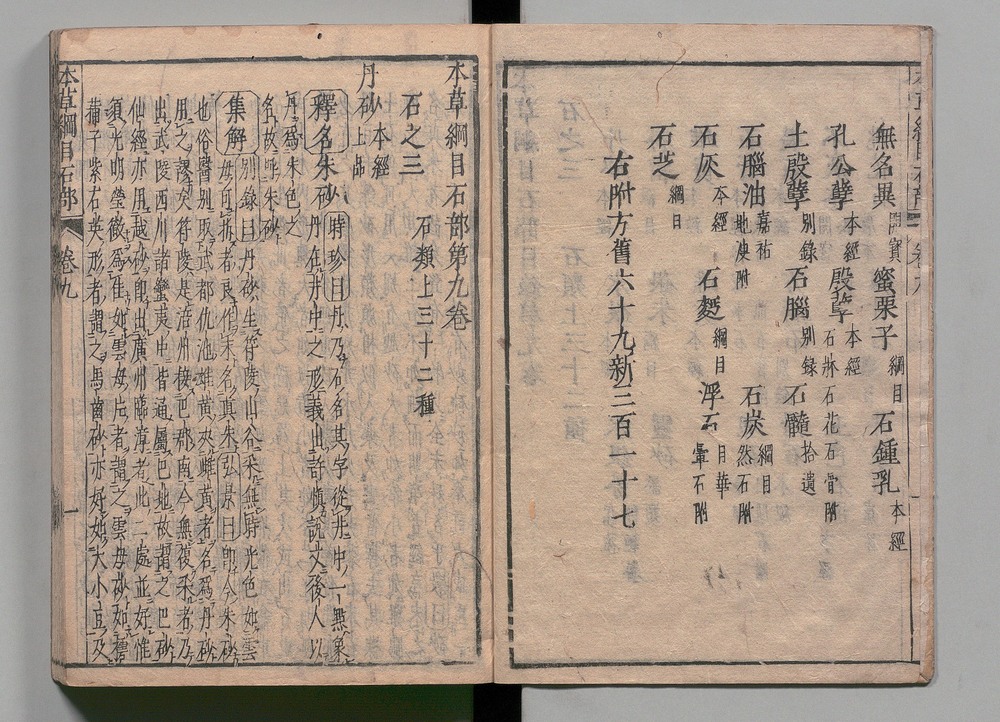 無名異 開寶 蜜栗子 綱目 石鍾乳 本經
孔公孽 本經 殷孽 本經 石牀石花石骨附
土殷孽 別錄 石腦 別錄 石髓 拾遺
石腦油 嘉祐 地溲附 石炭 綱目 然石附
石灰 本經 石麪 綱目 浮石 日華 暈石附
石芝 綱目
右附方舊六十九新三百一十七
本草綱目石部第九卷
石之三 石類上三十二種
丹砂 本經上品
釋名朱砂 時珍曰丹乃石名其字從井中一點象
丹在井中之形義出許慎說文後人以
丹爲朱色之
名故呼朱砂
集解 別錄曰丹砂生符陵山谷采無時光色如雲
母可拆者良作末名真朱弘景曰卽今朱砂
也俗醫別取武都仇池雄黃夾雌黃者名爲丹砂
用之謬矣符陵是涪州接巴郡南今無復采者乃
出武陵西川諸蠻夷中皆通屬巴地故謂之巴砂
仙經亦用越砂卽出廣州臨漳者此二處並好惟
須光明瑩徹爲佳如雲母片者謂之雲母砂如樗
蒲子紫石英形者謂之馬齒砂亦好如大小豆及
本草綱目石部 卷九 一